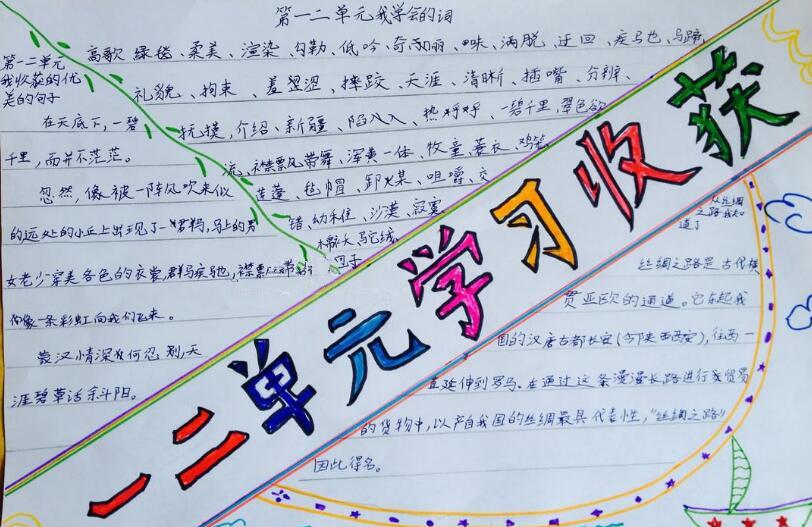 第一二单元我学会的词
高歌、绿毯、柔美、渲染、勾勒、低吟、奇丽、洒脱、迂回、疾驰、马蹄、
礼貌、拘束、羞涩、摔跤、天涯、清晰、插嘴、分辨、
抚摸、介绍、新疆、陷入、热乎乎、一碧千里、翠色欲
流、襟飘带舞、浑黄一体、牧童、蓑衣、鸡笼、
莲蓬、毡帽、卸煤、咀嚼、交
错、幼稚、沙漠、寂寞、
棉袄、驼绒、
包子
第一二单元
我收获的优
美的句子
在天底下,一碧
千里,而并不茫茫。
忽然,像被一阵风吹来似
的远处的小丘上出现了一群马,马上的男
女老少穿美各色的衣裳,群马疾驰,襟飘带舞
像一条彩虹向我们飞来。
蒙汉情深何忍别,天
涯碧草话斜阳。
一二单元学习收获
从丝绸
之路我知
道了
丝绸之路是古代横
贯亚欧的通道。它东起我
国的汉唐古都长安(今陕西西安),往西一
直延伸到罗马。在通过这条漫漫长路进行贸易
的货物中,以产自我国的丝绸最具代表性,"丝绸之路"
因此得名。